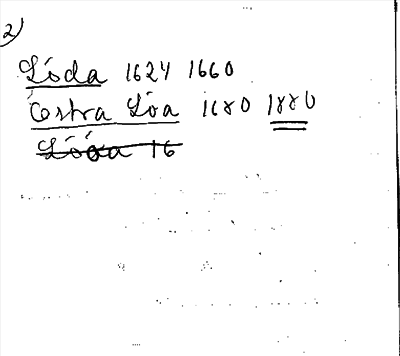 2)
Lóda 1624 1660
Östra Lóa 1680 1880
Lóóa 16